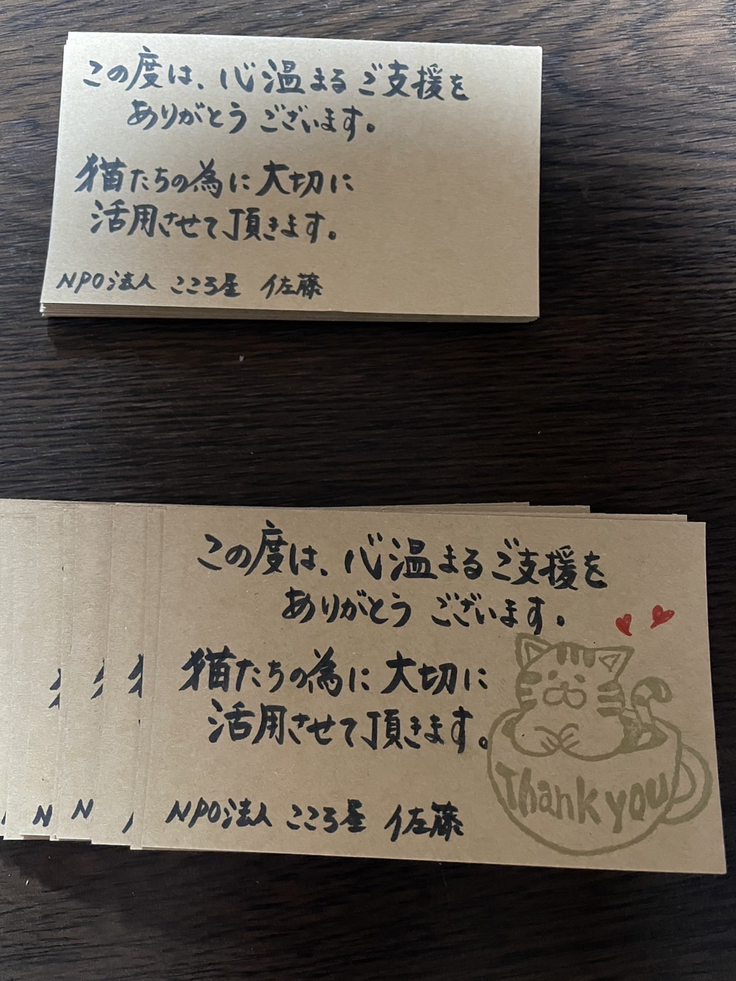 この度は、心温まるご支援を
ありがとうございます。
猫たちの為に大切に
活用させて頂きます。
NPO法人 こころ屋 佐藤
この度は、心温まるご支援を
ありがとうございます。
猫たちの為に大切に
活用させて頂きます。
Thank you
NPO法人 こころ屋 佐藤